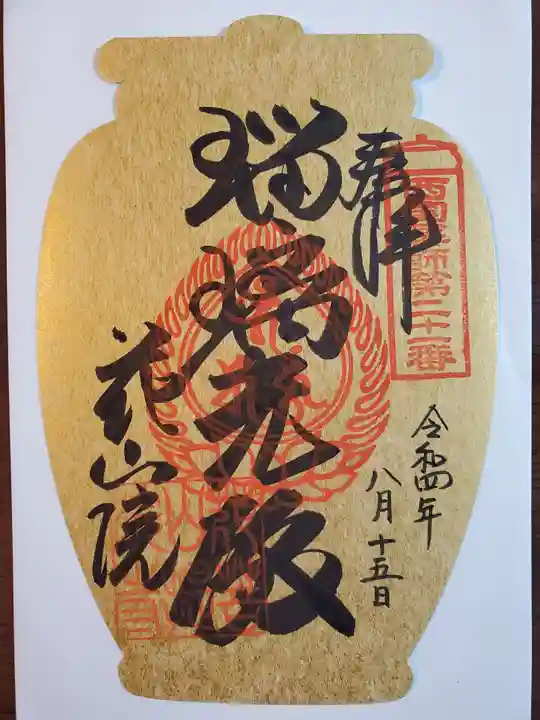 奉拝
西国薬師第二十一番
令和四年
八月十五日
瑠璃光殿
花山院